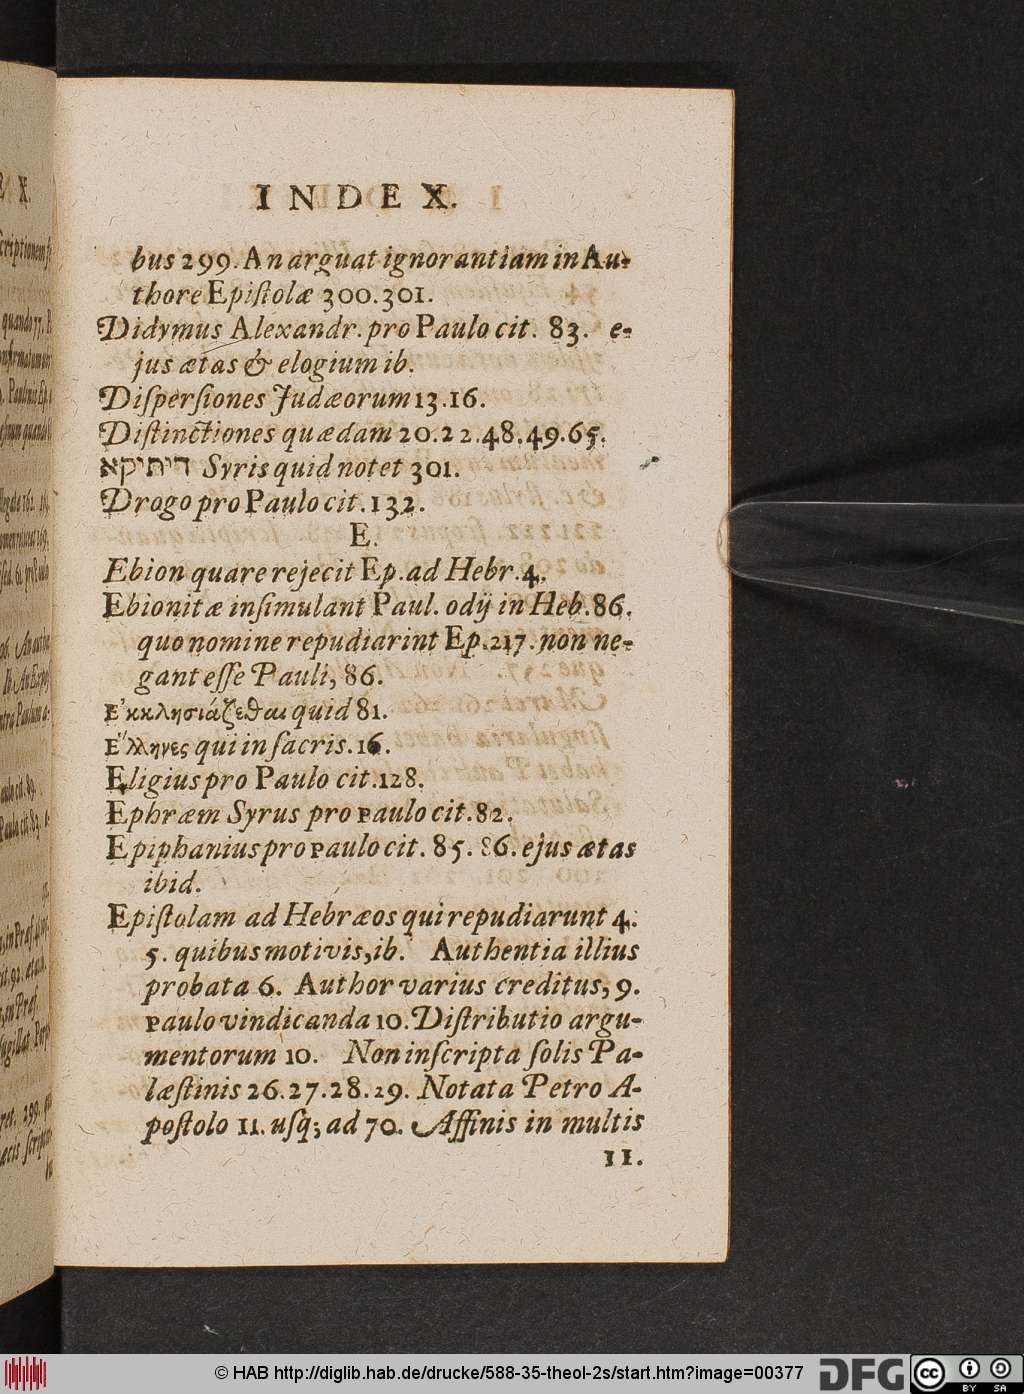 INDEX.
bus 299. An arguat ignorantiam in Au-
thore Epiſtolæ 300.301.
Didymus Alexandr. pro Paulo cit. 83. e-
jus ætas & elogium ib.
Diſperſiones Judæorum 13.16.
Diſtinctiones quædam 20.22.48.49.65.
דיתיקא Syris quid notet 301.
Drogo pro Paulo cit. 132.
E.
Ebion quare rejecit Ep. ad Hebr. 4.
Ebionitæ inſimulant Paul. odij in Heb. 86.
quo nomine repudiarint Ep. 217. non ne-
gant eſſe Pauli, 86.
Ἐκκλησιάζεθαι quid 81.
Ἕλληνες qui in ſacris. 16.
Eligius pro Paulo cit. 128.
Ephræm Syrus pro Paulo cit. 82.
Epiphanius pro Paulo cit. 85. 86. ejus ætas
ibid.
Epiſtolam ad Hebræos qui repudiarunt 4.
5. quibus motivis, ib. Authentia illius
probata 6. Author varius creditus, 9.
Paulo vindicanda 10. Diſtributio argu-
mentorum 10. Non inſcripta ſolis Pa-
læſtinis 26.27.28.29. Notata Petro A-
poſtolo 11. uſq; ad 70. Affinis in multis
11.
© HAB http://diglib.hab.de/drucke/588-35-theol-2s/start.htm?image=00377
DFG
cc BY SA